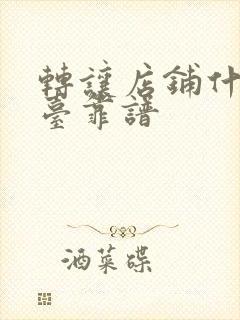 轉讓店鋪什
臺靠譜
酒菜碟